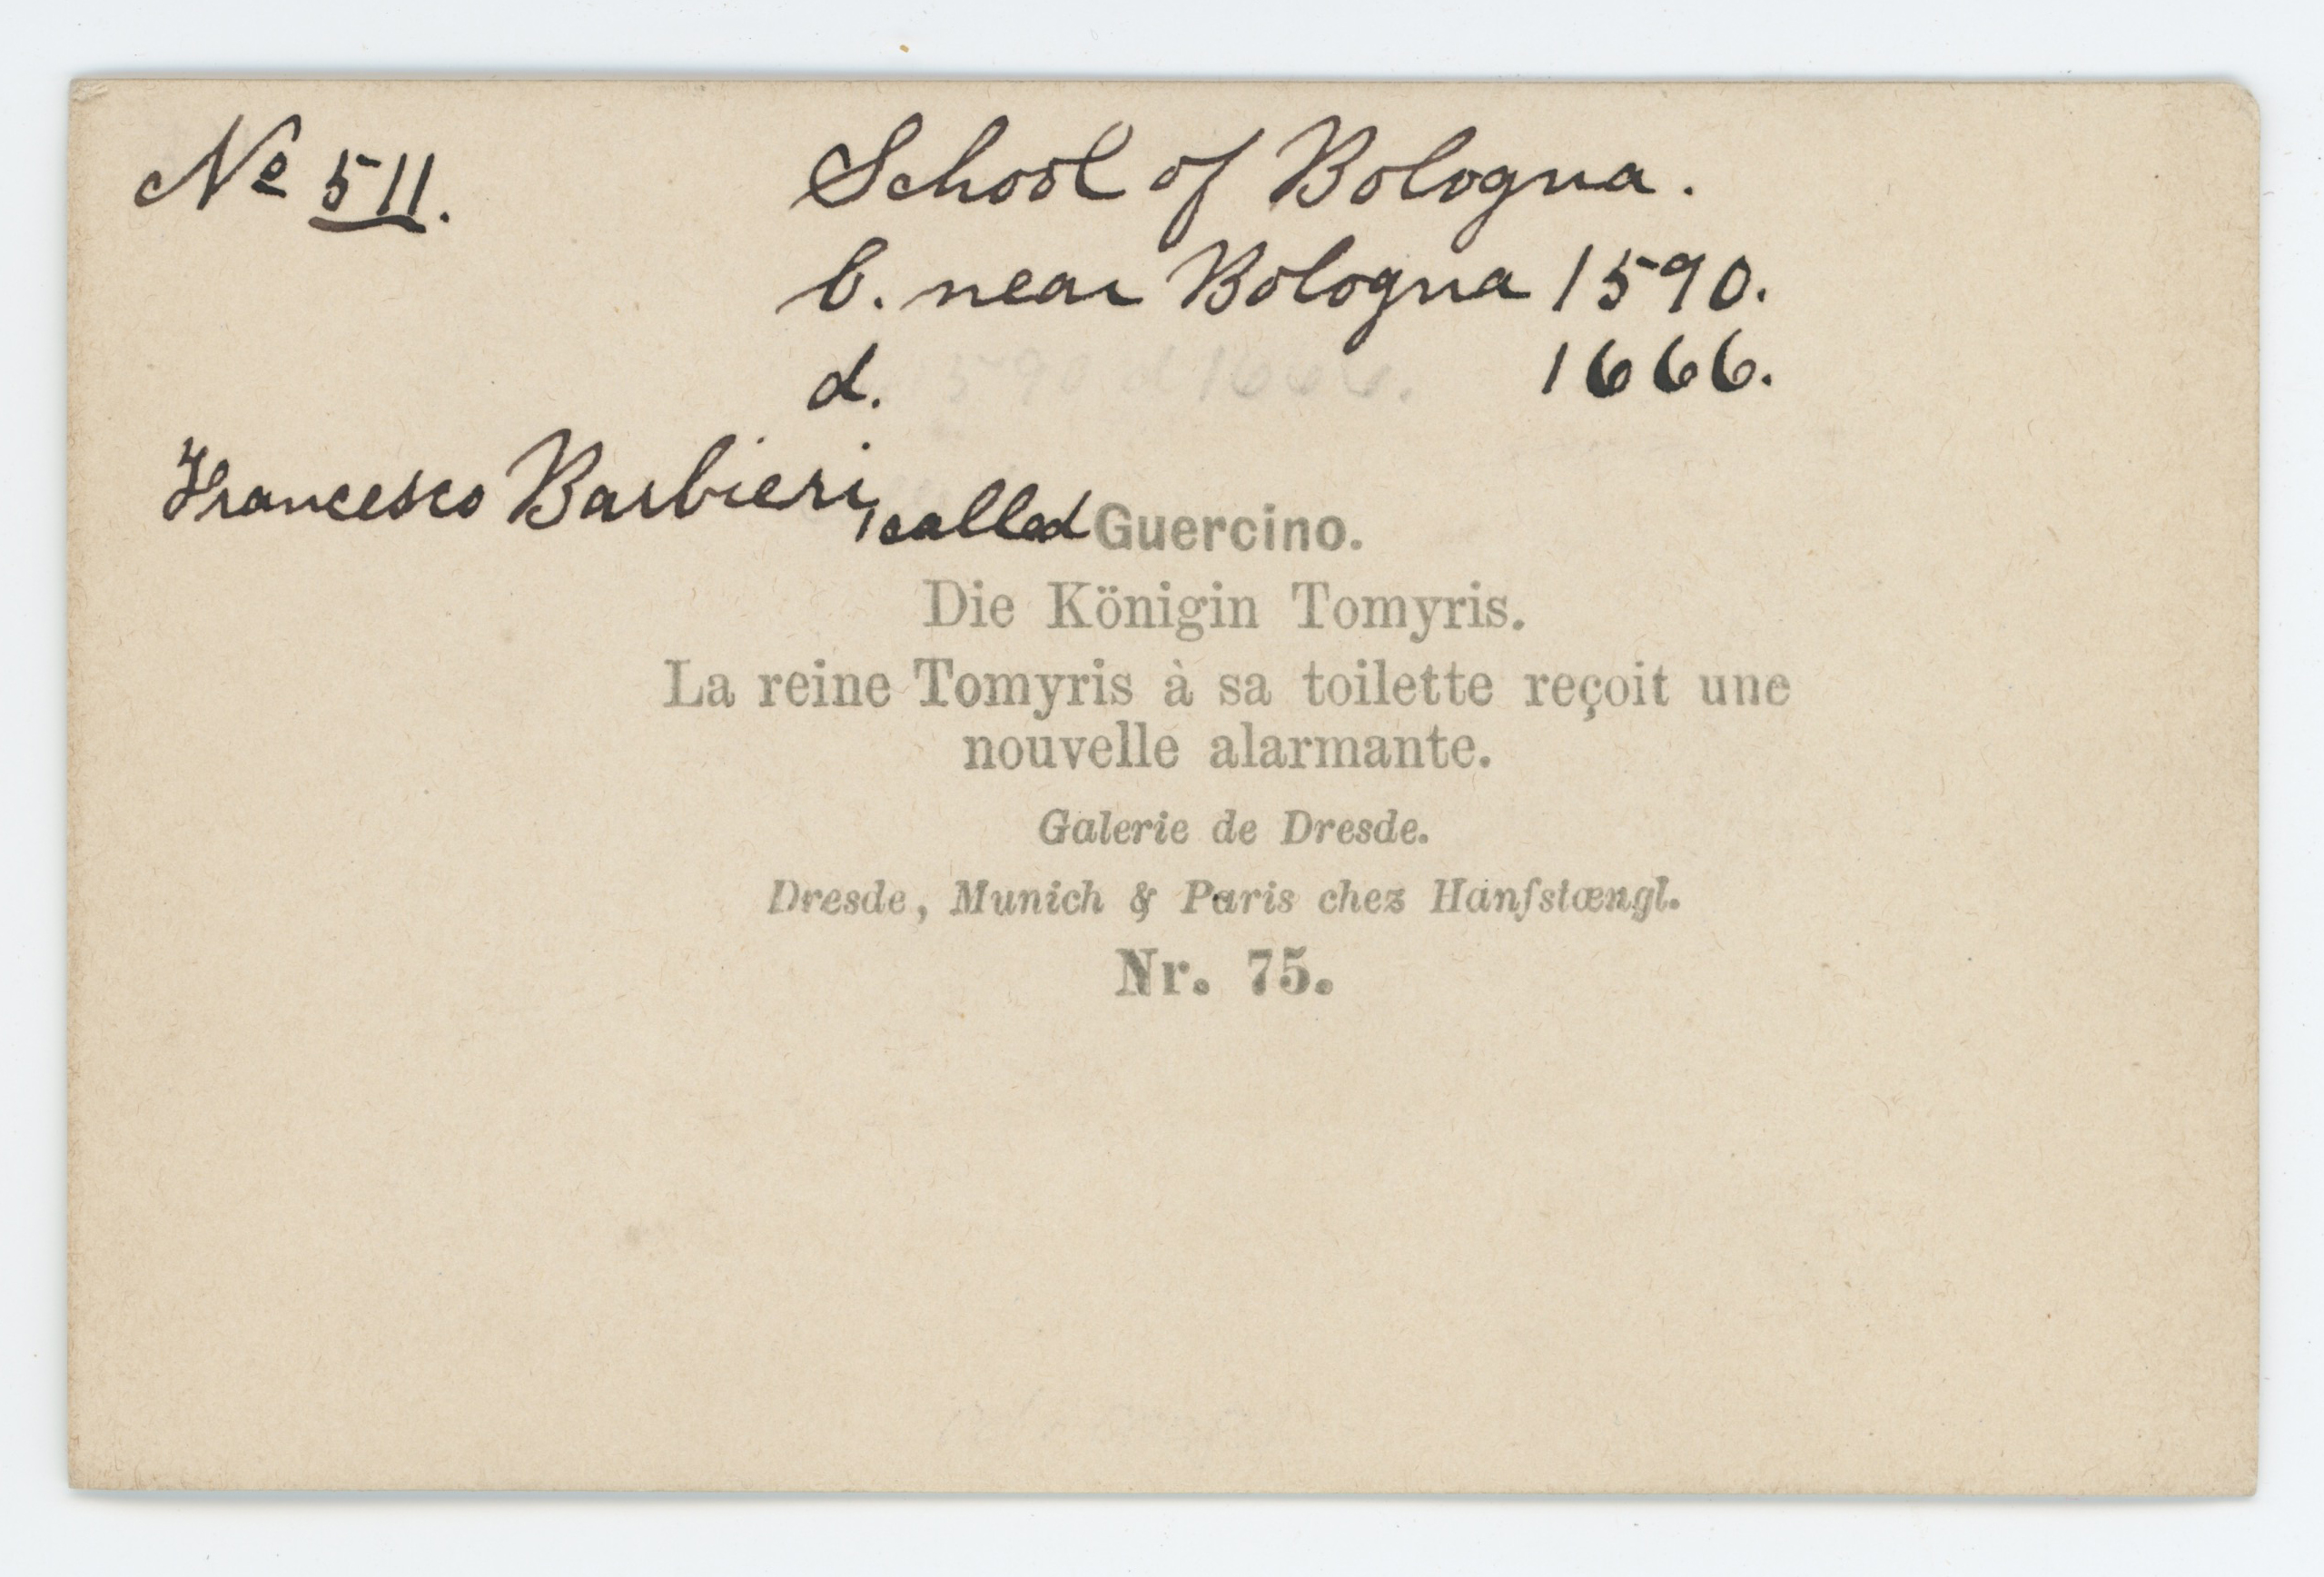 Nº 511.
School of Bologna.
b. near Bologna 1590.
d. 1666.
590 d 1666.
Francesco Barbieri, called Guercino.
Die Königin Tomyris.
La reine Tomyris à sa toilette reçoit une
nouvelle alarmante.
Galerie de Dresde.
Dresde, Munich & Paris chez Hanfstœngl.
Nr. 75.